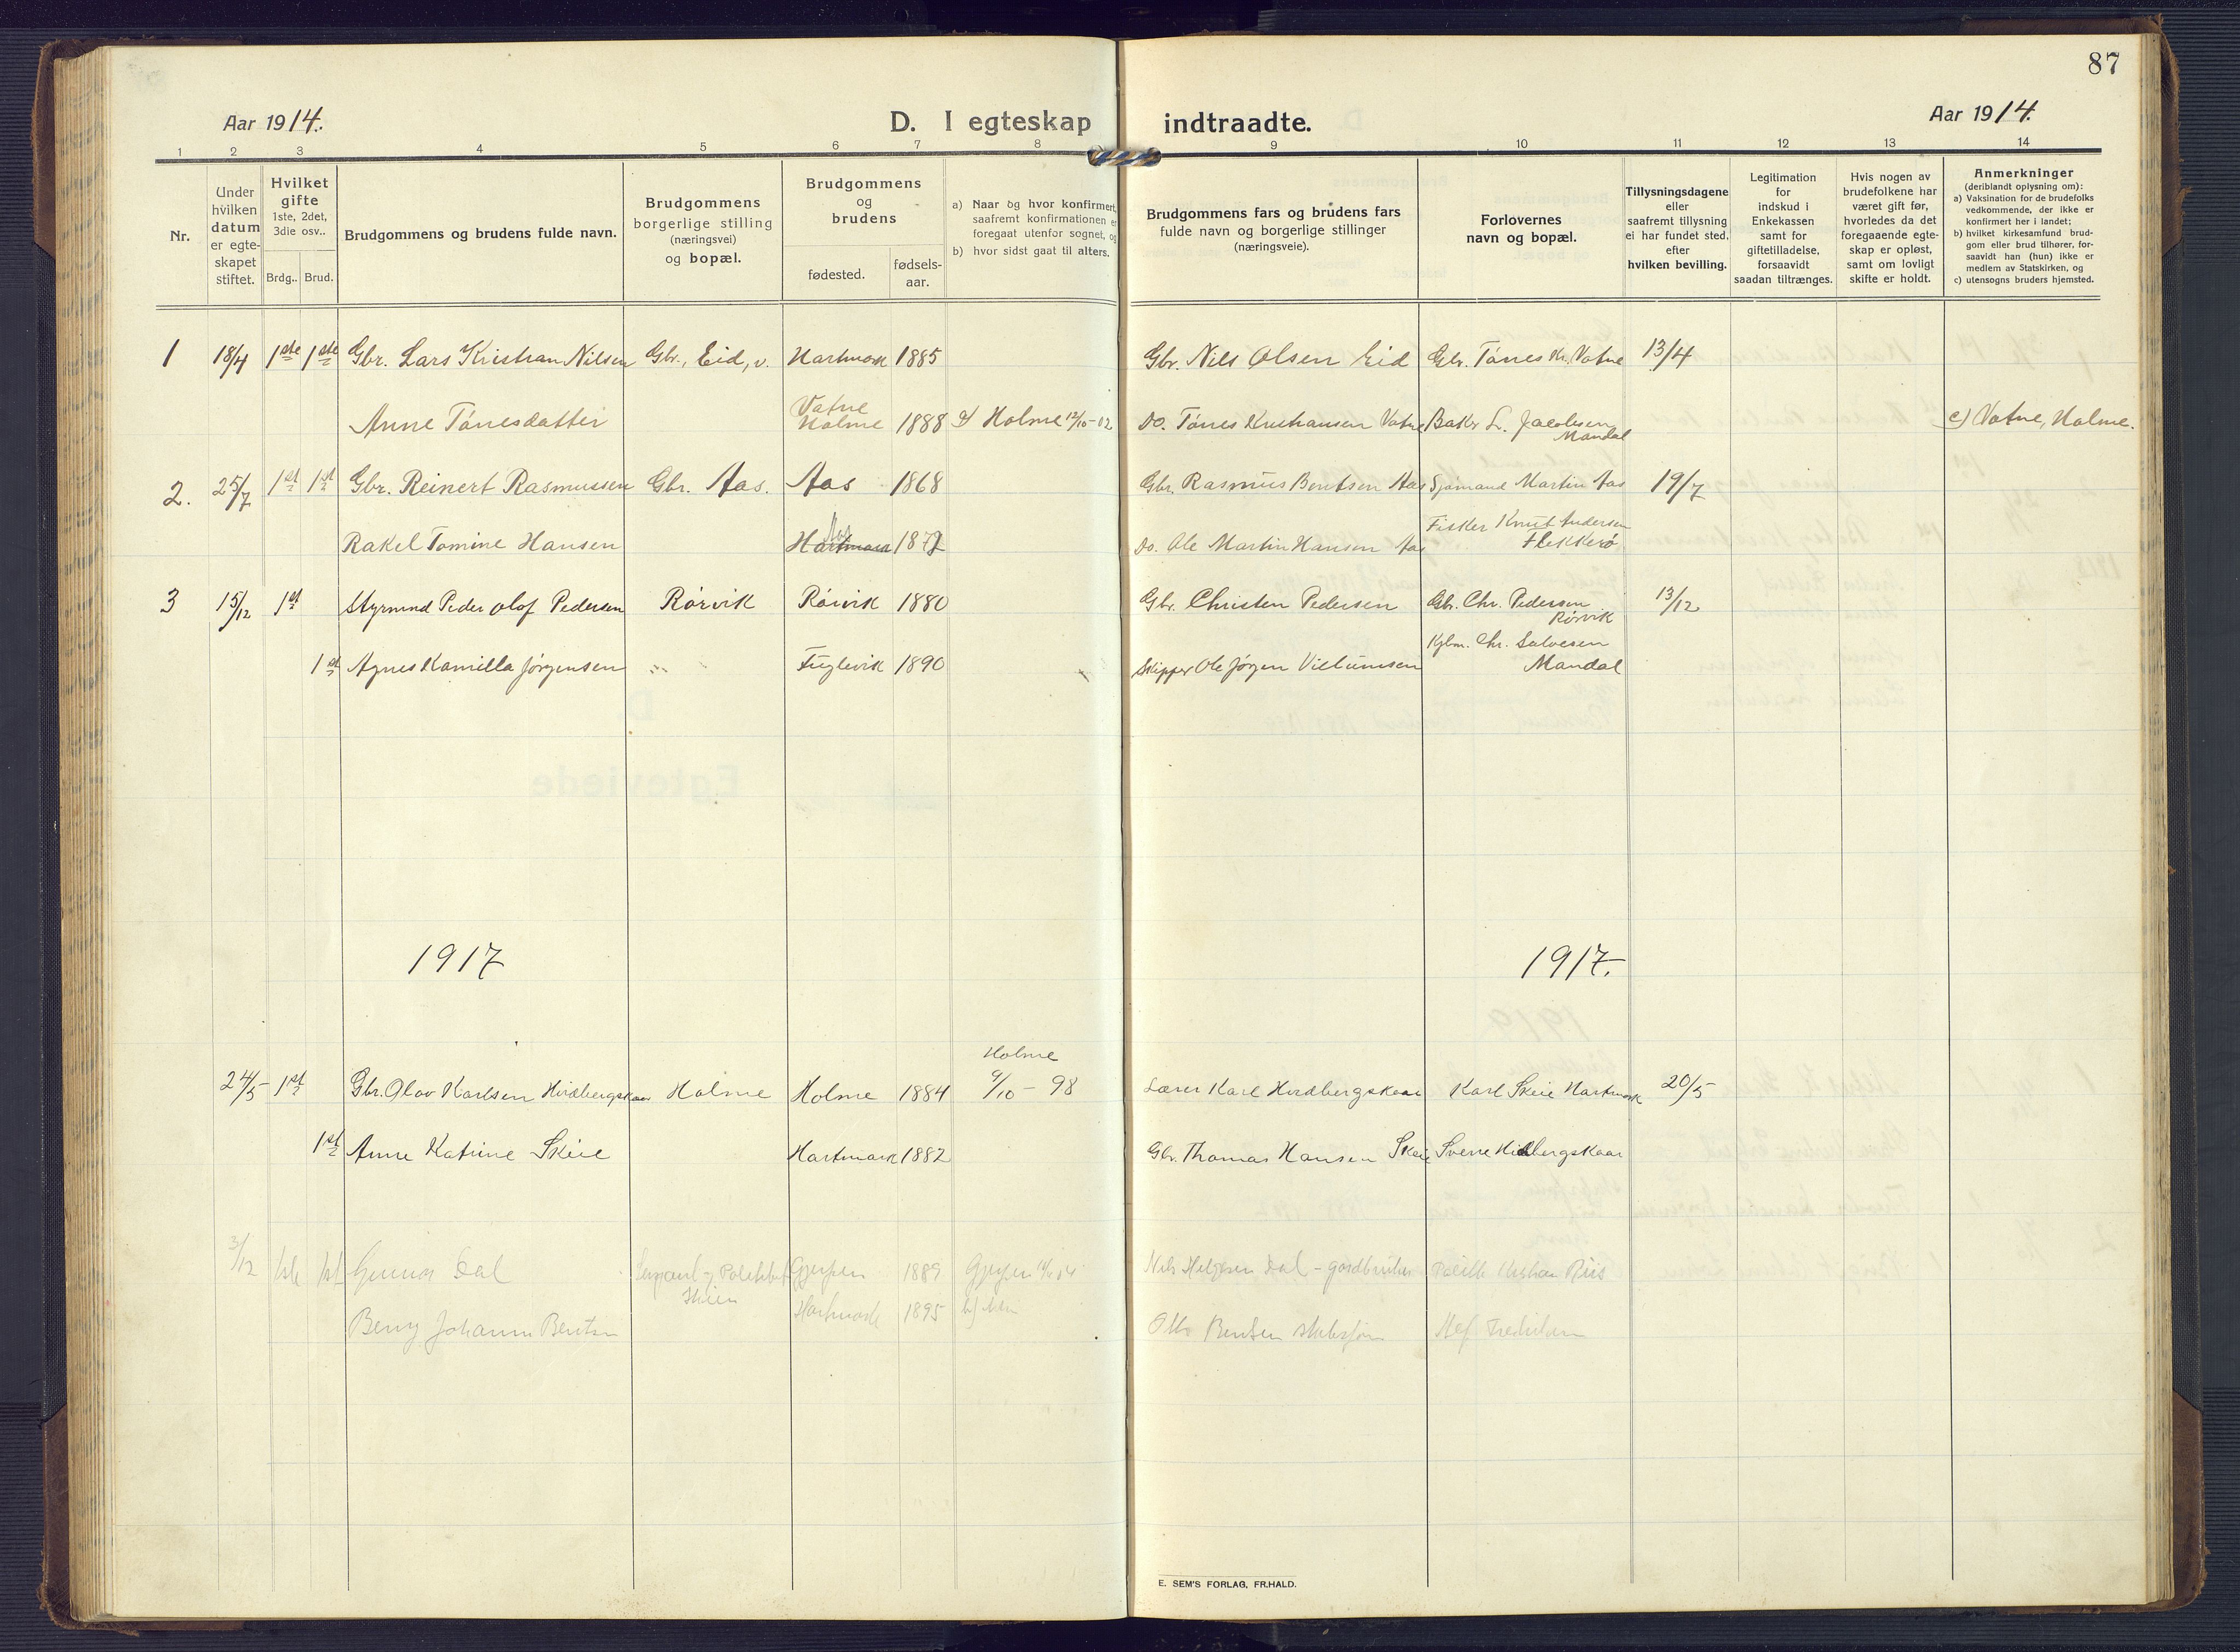 87
Aar 1914.
D. I egteskap indtraadte.
Aar 1914.
1 2 3 4 5 6 7 8 9 10 11 12 13 14
Nr.
Under hvilken datum er egte- skapet stiftet.
Hvilket gifte 1ste, 2det, 3die osv..
Brdg.. Brud.
Brudgommens og brudens fulde navn.
Brudgommens borgerlige stilling (næringsvei) og bopæl.
Brudgommens og brudens
fødested.
fødsels- aar.
a) Naar og hvor konfirmert, saafremt konfirmationen er foregaat utenfor sognet, og
b) hvor sidst gaat til alters.
Brudgommens fars og brudens fars fulde navn og borgerlige stillinger (næringsveie).
Forlovernes navn og bopæl.
Tillysningsdagene eller saafremt tillysning ei har fundet sted, efter hvilken bevilling.
Legitimation for indskud i Enkekassen samt for giftetilladelse, forsaavidt saadan tiltrænges.
Hvis nogen av brudefolkene har været gift før, hvorledes da det foregaaende egte- skap er opløst, samt om lovligt skifte er holdt.
Anmerkninger (deriblandt oplysning om):
a) Vaksination for de brudefolks vedkommende, der ikke er konfirmert her i landet;
b) hvilket kirkesamfund brud- gom eller brud tilhører, for- saavidt han (hun) ikke er medlem av Statskirken, og
c) utensogns bruders hjemsted.
1 18/4 1ste 1ste Gbr. Lars Kristian Nilsen Gbr., Eid, v. Hartmark 1885 Gbr. Nils Olsen Eid Gbr. Tónes Kr. Vatne 13/4
Anne Tónesdatter Vatne Holme 1888 a) Holme 12/10-02 Do. Tónes Kristiansen Vatne Baker L. Jacobsen Mandal c) Vatne, Holme.
2. 25/7 1st 1st Gbr. Reinert Rasmussen Gbr. Aas. Aas 1868 Gbr. Rasmus Bentsen Aas Sjømand Martin Aas 19/7
Rakel Tomine Hansen Hartmark Aas 1872 Do. Ole Martin Hansen Aas Fisker Knut Andersen Flekkerø
3 15/12 1st Styrmnd Peder Olof Pedersen Rórvik Rórvik 1880 Gbr. Christen Pedersen Gbr. Chr. Pedersen Rórvik 13/12
1st Agnes Kamilla Jórgensen Fuglevik 1890 Skipper Ole Jórgen Villumsen Kjbm. Chr. Salvesen Mandal
1917 1917.
24/5 1st Gbr. Olav Karlsen Hirdbergskaar Holme Holme 1884 Holme 9/10 - 98 Lærer Karl Hirdbergskaar Karl Skeie Hartmark 20/5
1st Anne Katrine Skeie Hartmark 1882 Gbr. Thomas Hansen Skeie Sverre Hirdbergskaar
3/12 1ste 1st Gunnar Dal Skien Gjerpen 1889 Gjerpen Nils Dal - gardbruker Riis
Johanne Bentsen Hartmark 1895 Otto Bentsen
E. SEM'S FORLAG, FR.HALD.